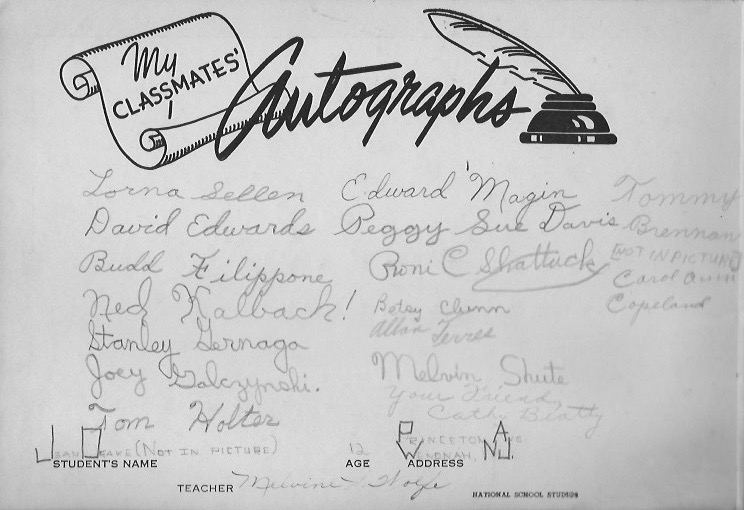 My
CLASSMATES'
Autographs
Lorna Sellen
David Edwards
Budd Filippone
Ned Kalback!
Stanley Gernaga
Joey Galczynski.
Tom Holter
Edward Magin
Peggy Sue Davis
Roni C Shattuck
Betsy Chunn
Allan Terres
Melvin Shute
Your Friend,
Cathy Beatty
Tommy
Brennan
(NOT IN PICTURE)
Carol Ann
Copeland
(NOT IN PICTURE)
STUDENT'S NAME
12
AGE
PRINCETON AVE
WENONAH, N.J.
ADDRESS
TEACHER Wolfe
NATIONAL SCHOOL STUDIOS